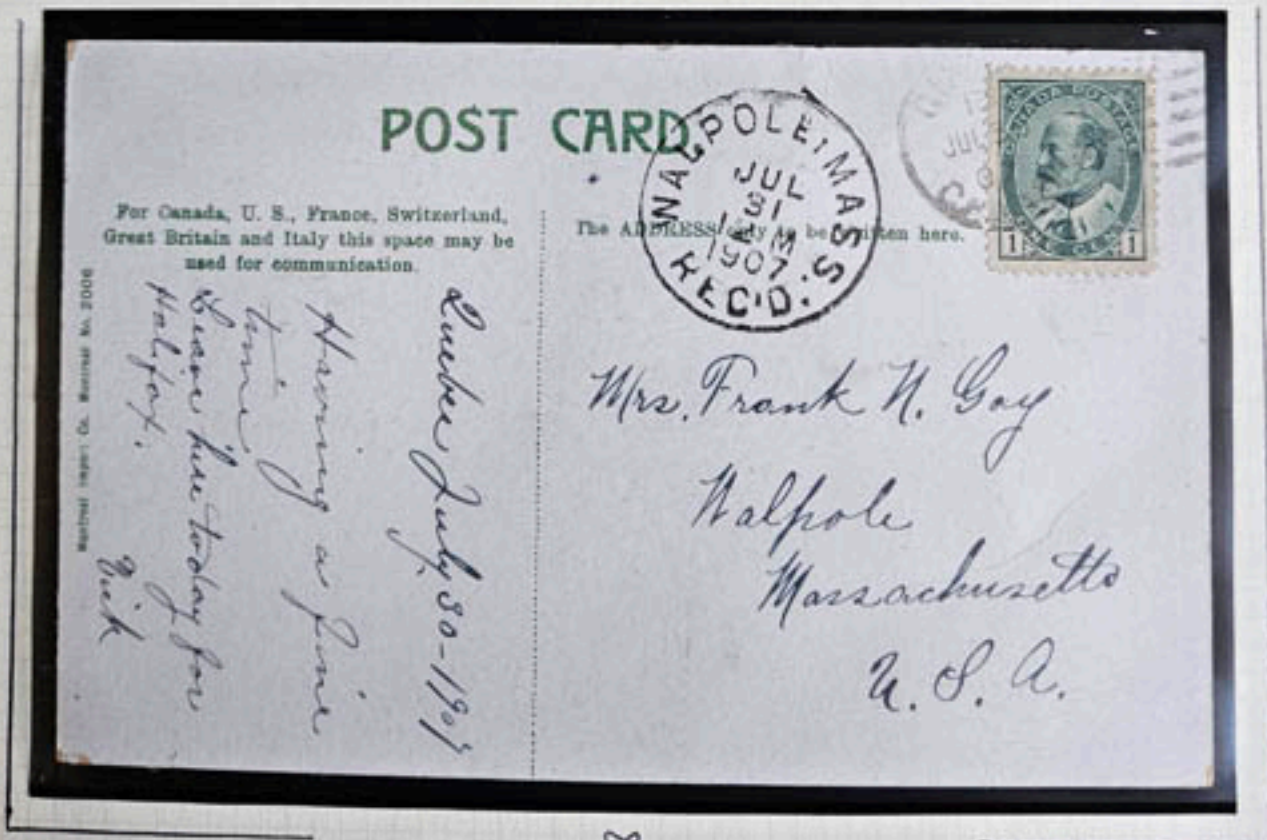 POST CARD
For Canada, U. S., France, Switzerland,
Great Britain and Italy this space may be
used for communication.
The ADDRESS only to be written here.
WALPOLE, MASS.
JUL
31
M
1907
REC'D.
JUL
CANADA POSTAGE
1 1
Montreal Import Co. Montreal No. 2006
Quebec July 30-1907
Having a fine
time
Leave here today for
Halifax.
Mrs. Frank N. Gay
Walpole
Massachusetts
U. S. A.